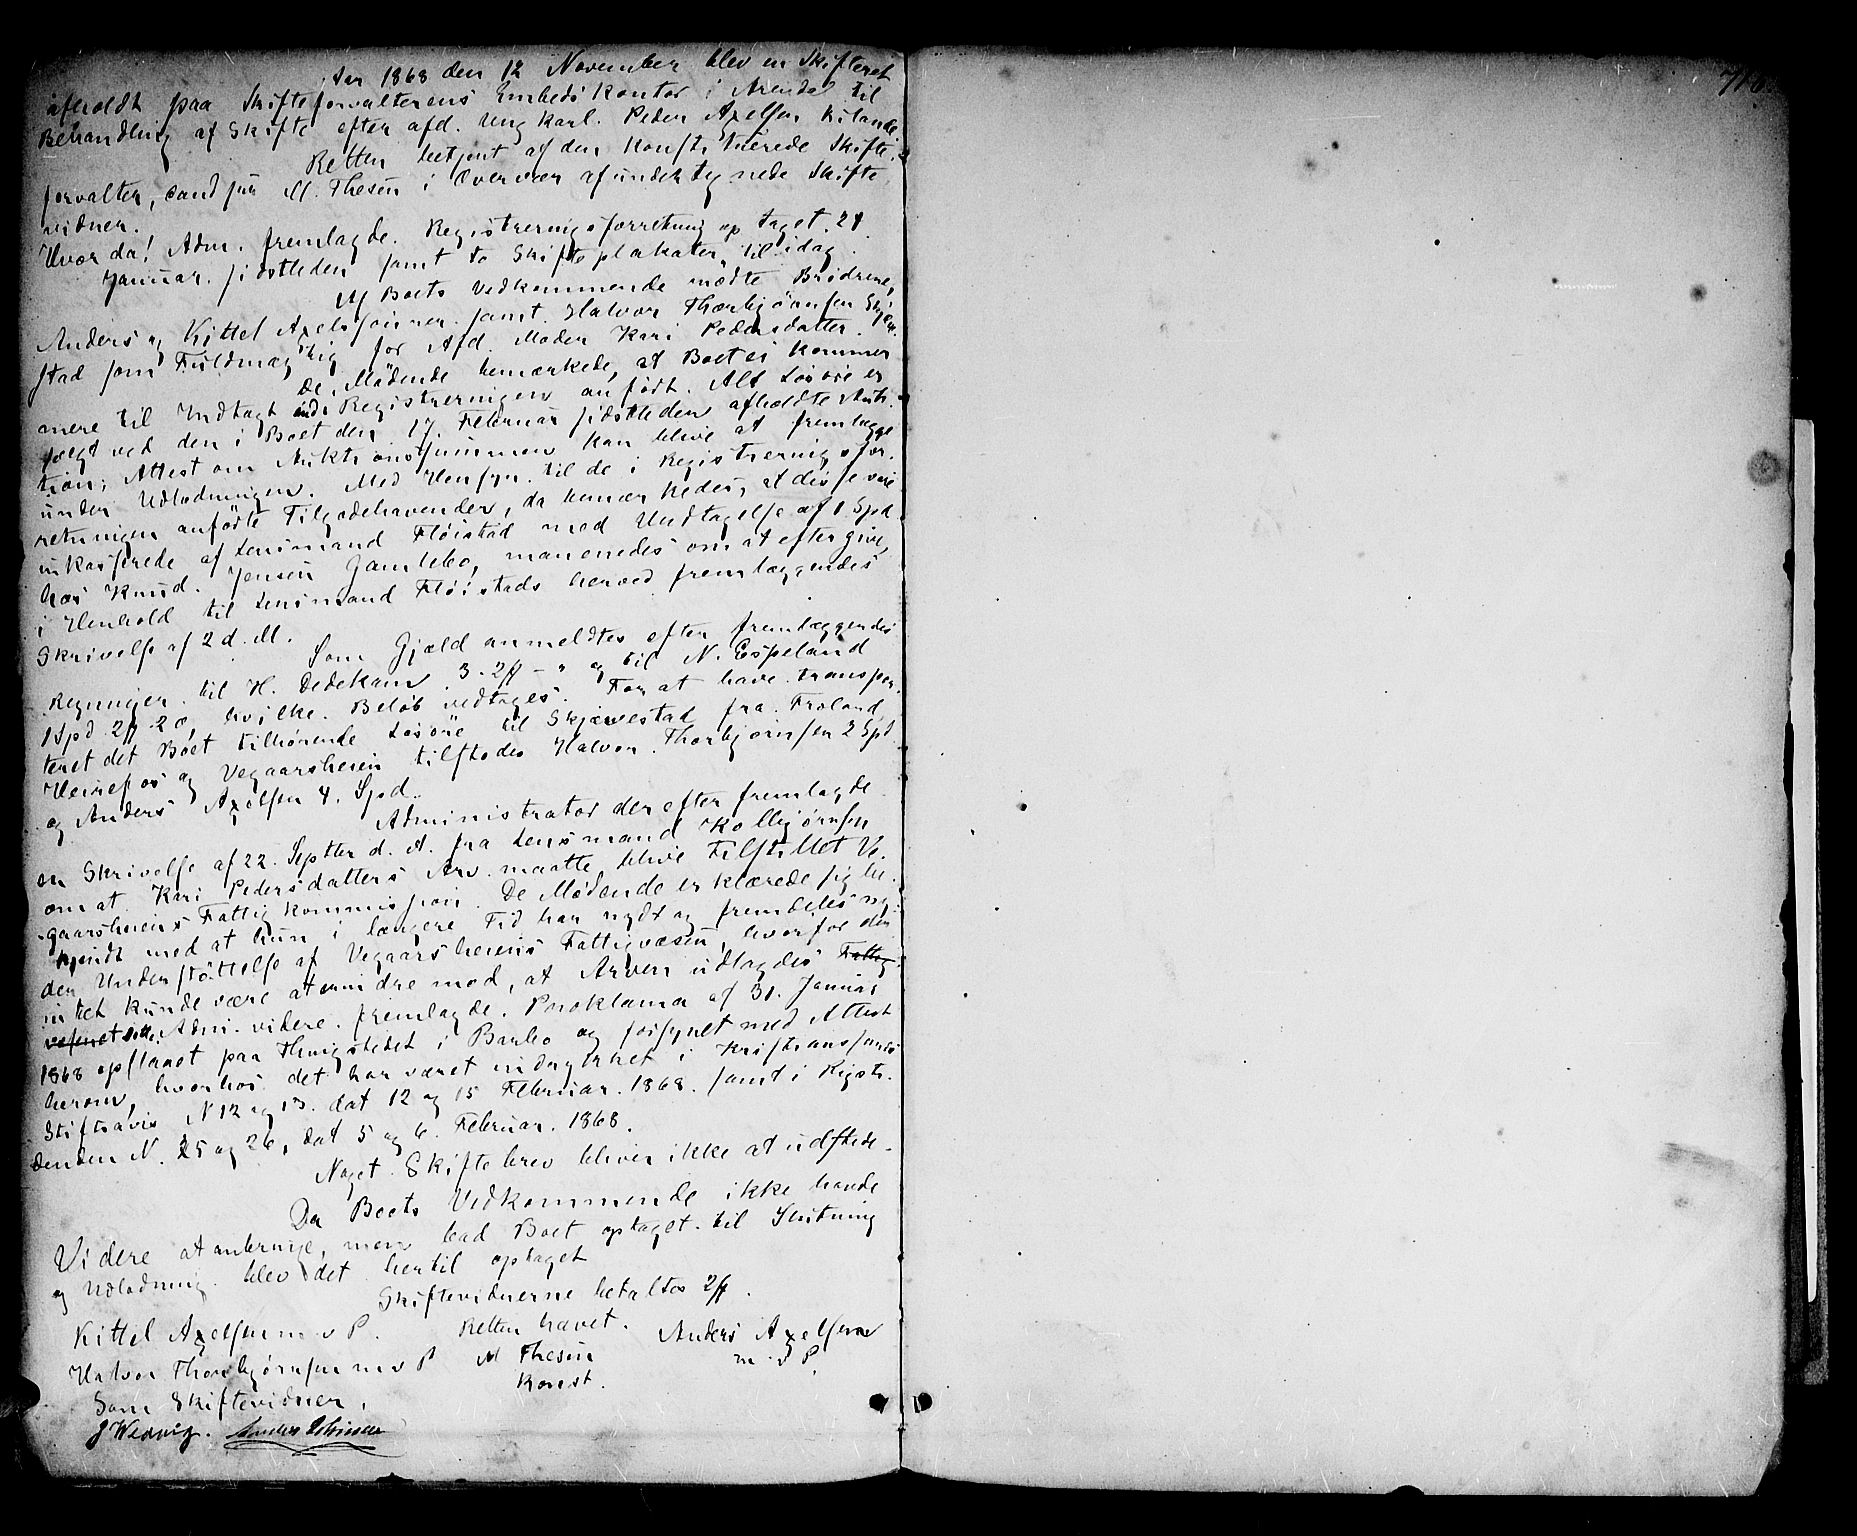 Aar 1868 den 12 November blev en Skifteret
afholdt paa Skifteforvalterens Embedskontor i Arendal til
Behandling af Skifte efter afd. Ungkarl. Peder Axelsen
Retten betjent af den Konstituerede Skifte-
forvalter, cand jur M. Thesen i Overvær af undertegnede Skifte
vidner.
Hvor da! Adm. fremlagde. Registreringsforretning optaget. 21
Januar. sidstleden samt to Skifteplakater til idag.
Af Boets Vedkommende mødte Brødrene,
Anders og Kittel Axelsønner. samt. Halvor Thorbjørnsen
stad som Fuldmægtig for Afd. Moder Kari Pedersdatter.
De Mødende bemærkede, at Boet ei kommer
mere til Indtægt end i Registreringen anført. Alt Løsøre er
solgt ved den i Boet den 17. Februar sidstleden afholdte Auk-
tion; Attest om Auktionssummen kan blive at fremlægge
under Udlodningen. Med Hensyn til de i Registreringsfor-
retningen anførte Tilgodehavender, da bemærkedes, at disse vare
inkasserede af Lensmand Fløistad med Undtagelse af 1 Spd
hos Knud. Jensen Gamlebo, man enedes om at eftergive,
i Henhold til Lensmand Fløistads herved fremlæggendes
Skrivelse af 2 d. M.
Som Gjæld anmeldtes efter fremlæggendes
Regninger. til H. Dedekam 3. 2 ß - " og til N. Espeland
1 Spd 2 ß 20, hvilke. Beløb vedtages. For at have transpor-
teret det Boet tilhørende Løsøre til Skjævestad fra. Froland,
Heirefos og Vegaarsheien tilstodes Halvor. Thorbjørnsen 2 Spd
og Anders Axelsen 4. Spd.
Administrator derefter fremlagde
en Skrivelse af 22. Septber d. A. fra Lensmand Kolbjørnsen
om at. Kari Pedersdatters Arv. maatte blive tilstillet Ve-
gaarsheiens Fattigkommission. De Mødende erklærede sig be-
kjendt med at hun i længere Tid har nydt og fremdeles ny-
der Understøttelse af Vegaarsheiens Fattigvæsen, hvorfor der
intet kunde være at erindre mod, at Arven udlagdes Fattig-
væsenet. Adm. videre. fremlagde. Proklama af 31. Januar
1868 opslaaet paa Thingstedet i Barbo og forsynet med Attest
herom, hvorhos det har været indrykket i Kristianssands
Stiftsavis N 12 og 13. dat 12 og 15 Februar. 1868. samt i Rigsti-
denden N. 25 og 26, dat 5 og 6. Februar. 1868.
Noget. Skiftebrev bliver ikke at udstede.
Da Boets Vedkommende ikke havde
Videre at anbringe, men bad Boet optaget. til Slutning
og Udlodning. blev det hertil optaget
Skiftevidnerne betaltes 2 ß.
Retten hævet.
Kittil Axelsen m. v P.
Anders Axelsen
m. v P.
Halvor Thorbjørnsen m v P
M Thesen
Konst.
Som Skiftevidner,
J Wedvig.